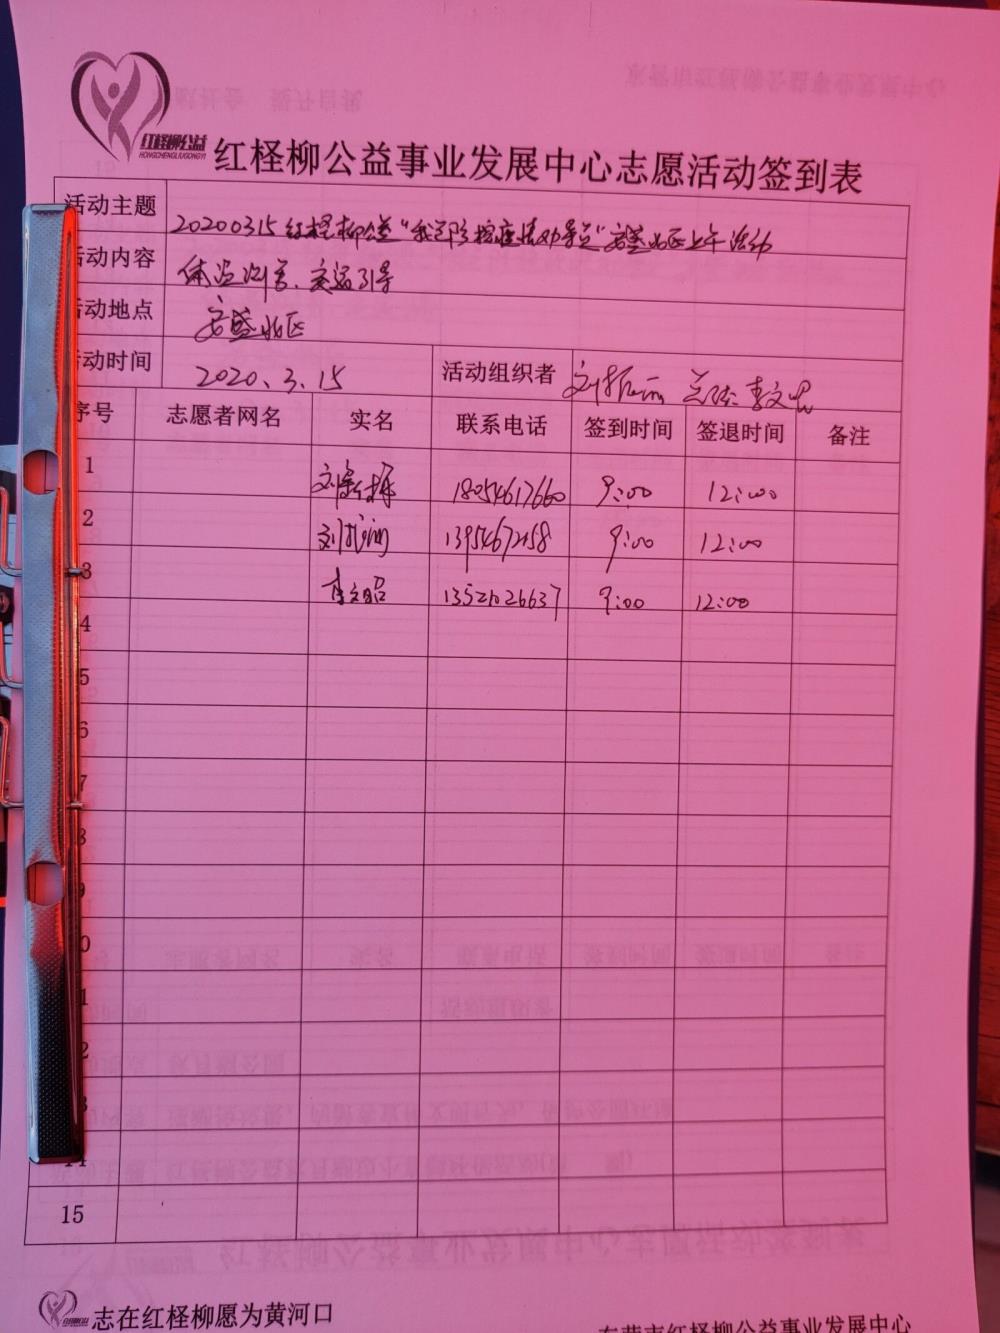 红柽柳公益
HONGCHENGLIUGONGYI
红柽柳公益事业发展中心志愿活动签到表
活动主题 20200315红柽柳公益“我是防控疫情劝导员”安盛北区上午活动
活动内容 体温测量、交通引导
活动地点 安盛北区
活动时间 2020.3.15 活动组织者 刘振 李文昭
序号 志愿者网名 实名 联系电话 签到时间 签退时间 备注
1 刘 18054617660 9:00 12:00
2 刘 9:00 12:00
3 李文昭 9:00 12:00
4
5
6
7
8
9
0
1
2
3
14
15
志在红柽柳愿为黄河口
东营市红柽柳公益事业发展中心